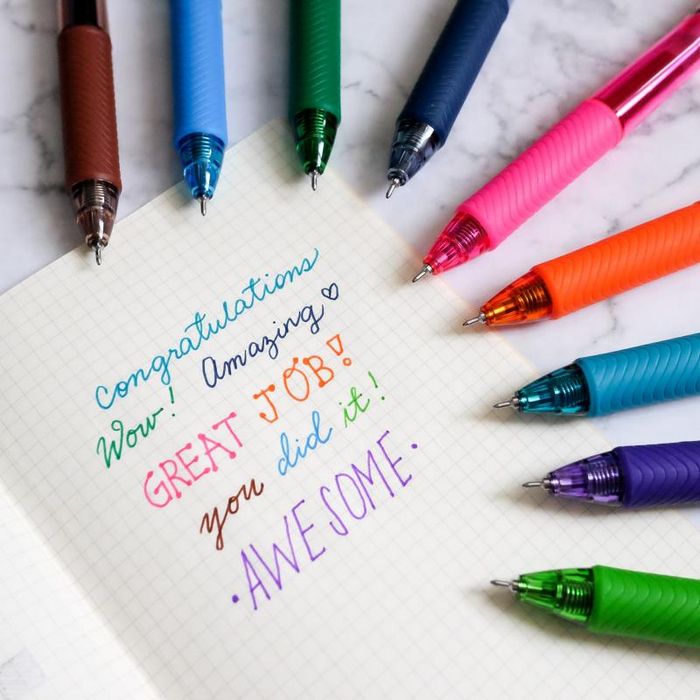 congratulations
Wow! Amazing ♡
GREAT JOB!
you did it!
·AWESOME·